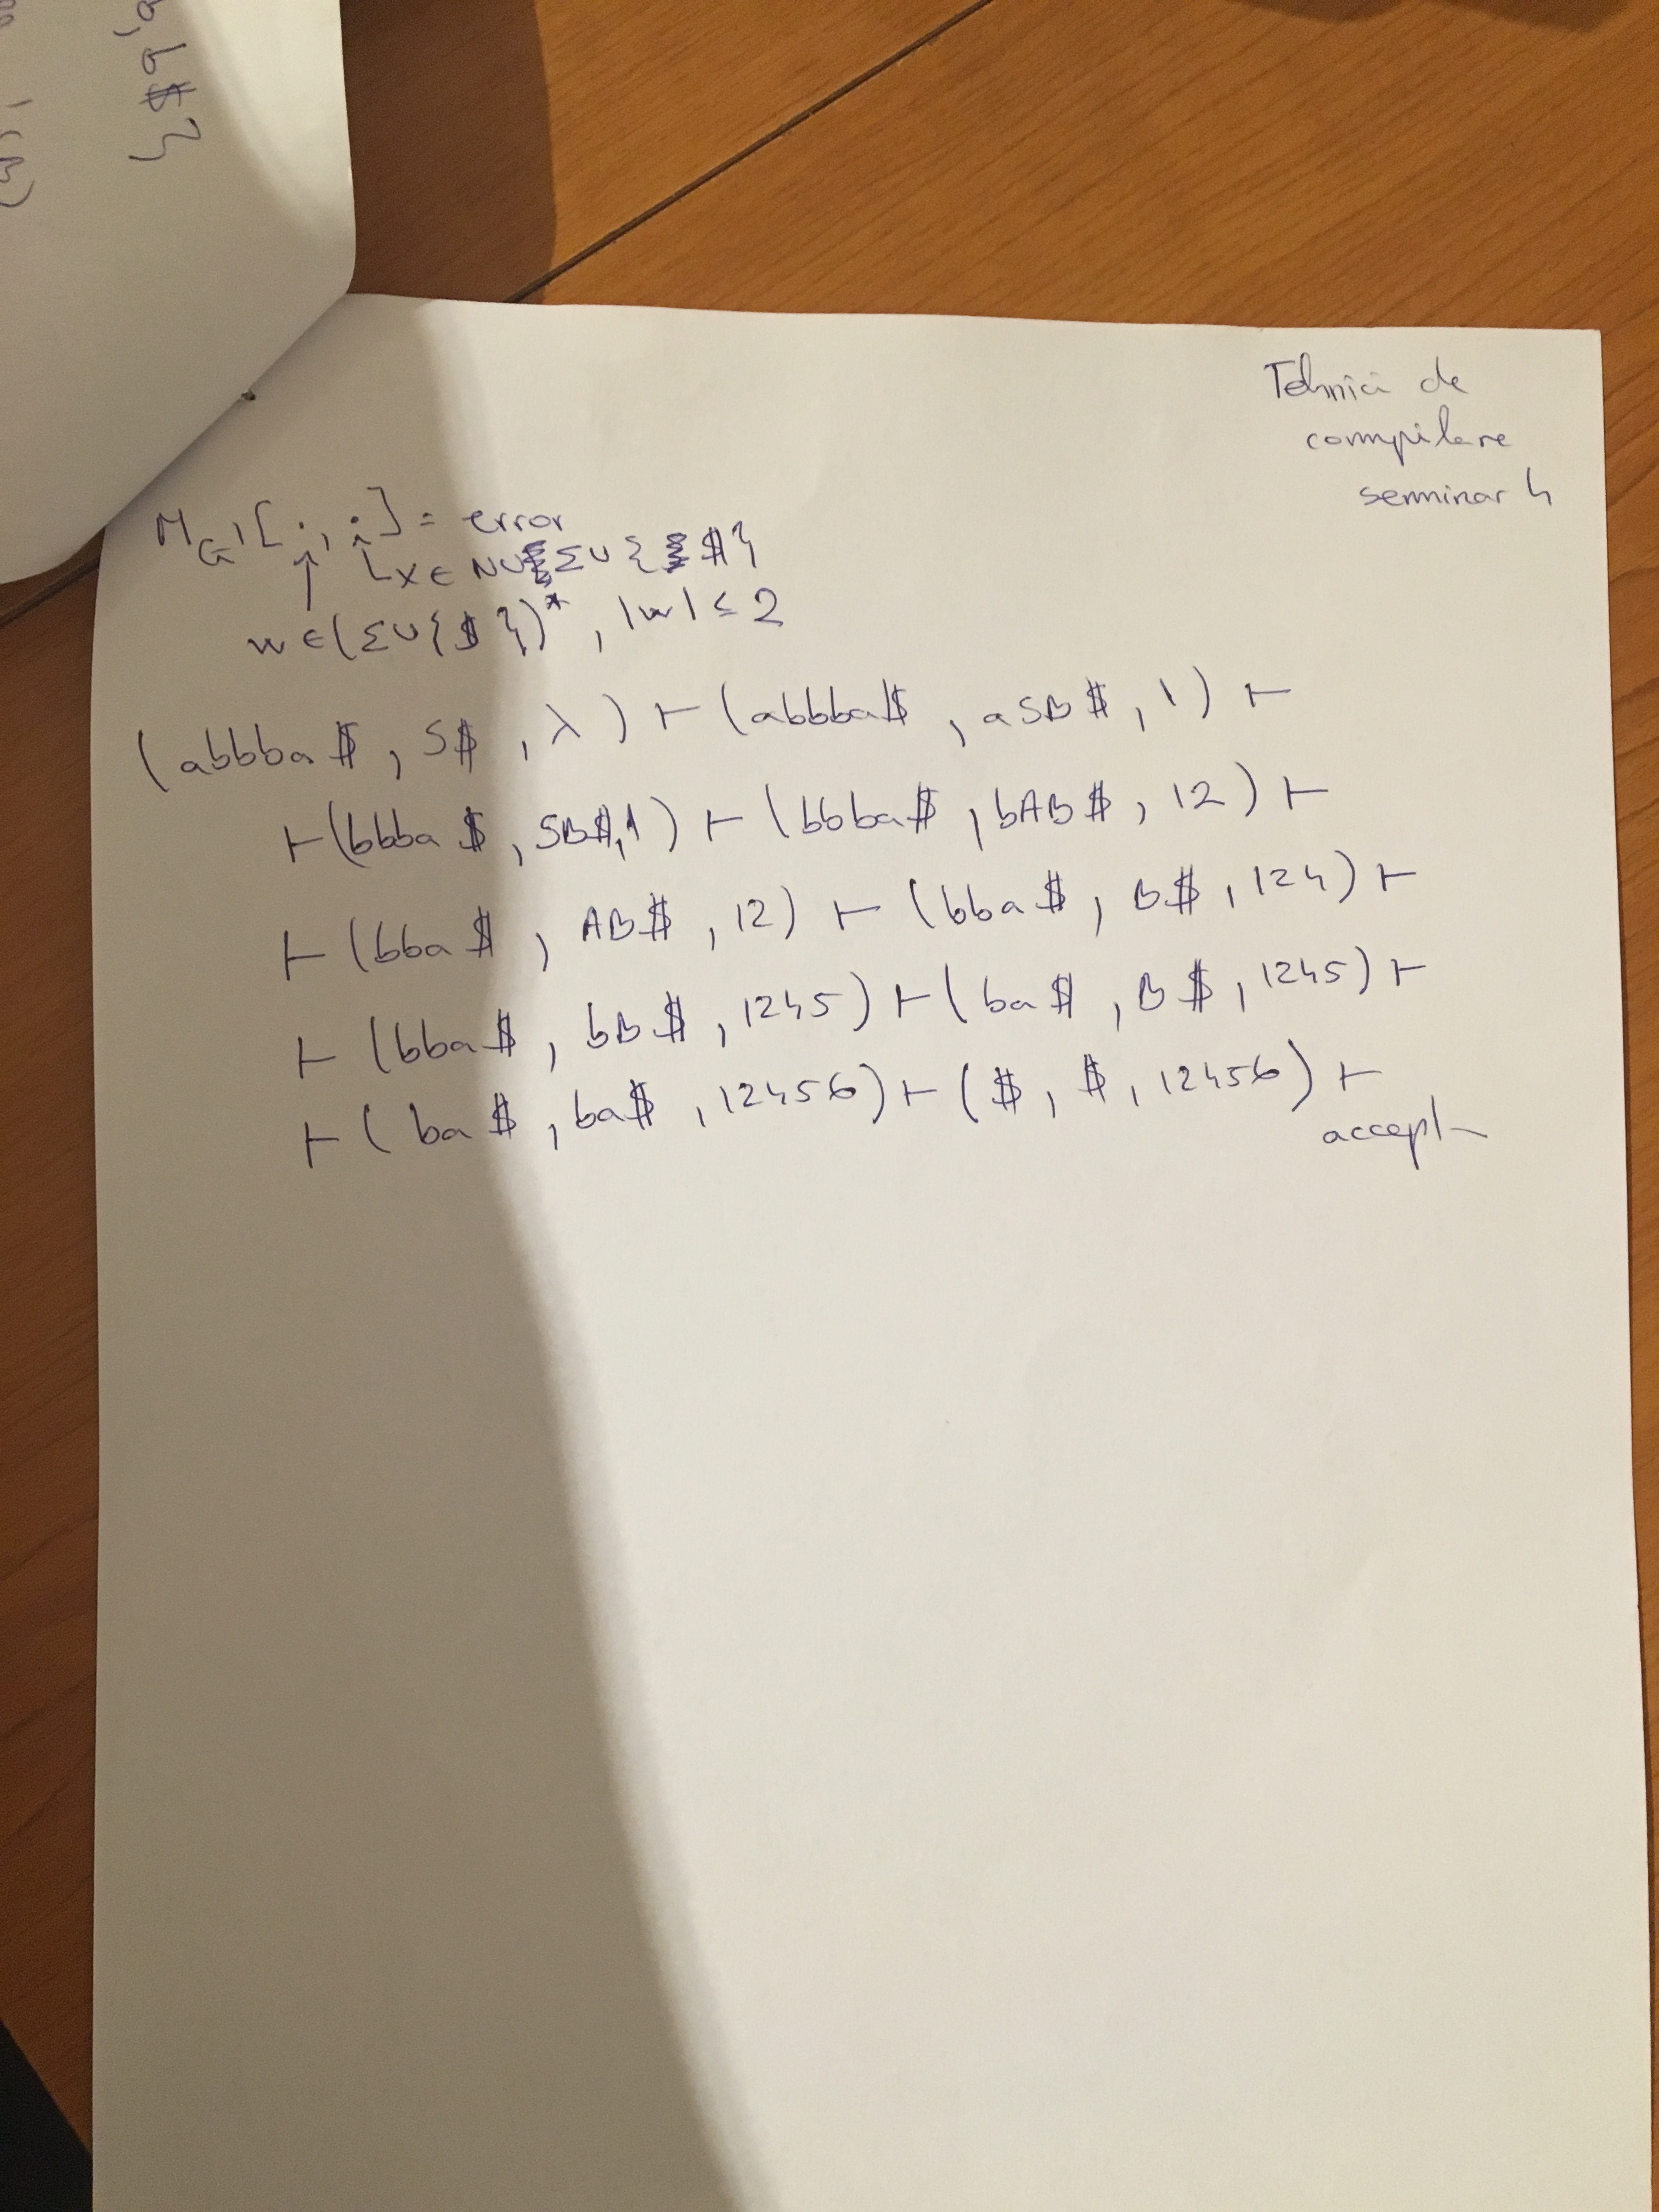 , b $ }
Tehnici de
compilare
seminar 4
M_G'[ · , · ] = error
↑ ↳ X ∈ N ∪ Σ ∪ { $ }
w ∈ (Σ ∪ { $ })* , |w| ≤ 2
(abbba $ , S$ , λ ) ⊢ (abbba$ , aSB $ , 1) ⊢
⊢ (bbba $ , SB$,1) ⊢ (bbba$ , bAB$ , 12) ⊢
⊢ (bba $ , AB$ , 12) ⊢ (bba $ , B$ , 124) ⊢
⊢ (bba $ , bB $ , 1245) ⊢ (ba $ , B $ , 1245) ⊢
⊢ ( ba $ , ba$ , 12456) ⊢ ( $ , $ , 12456) ⊢
accept